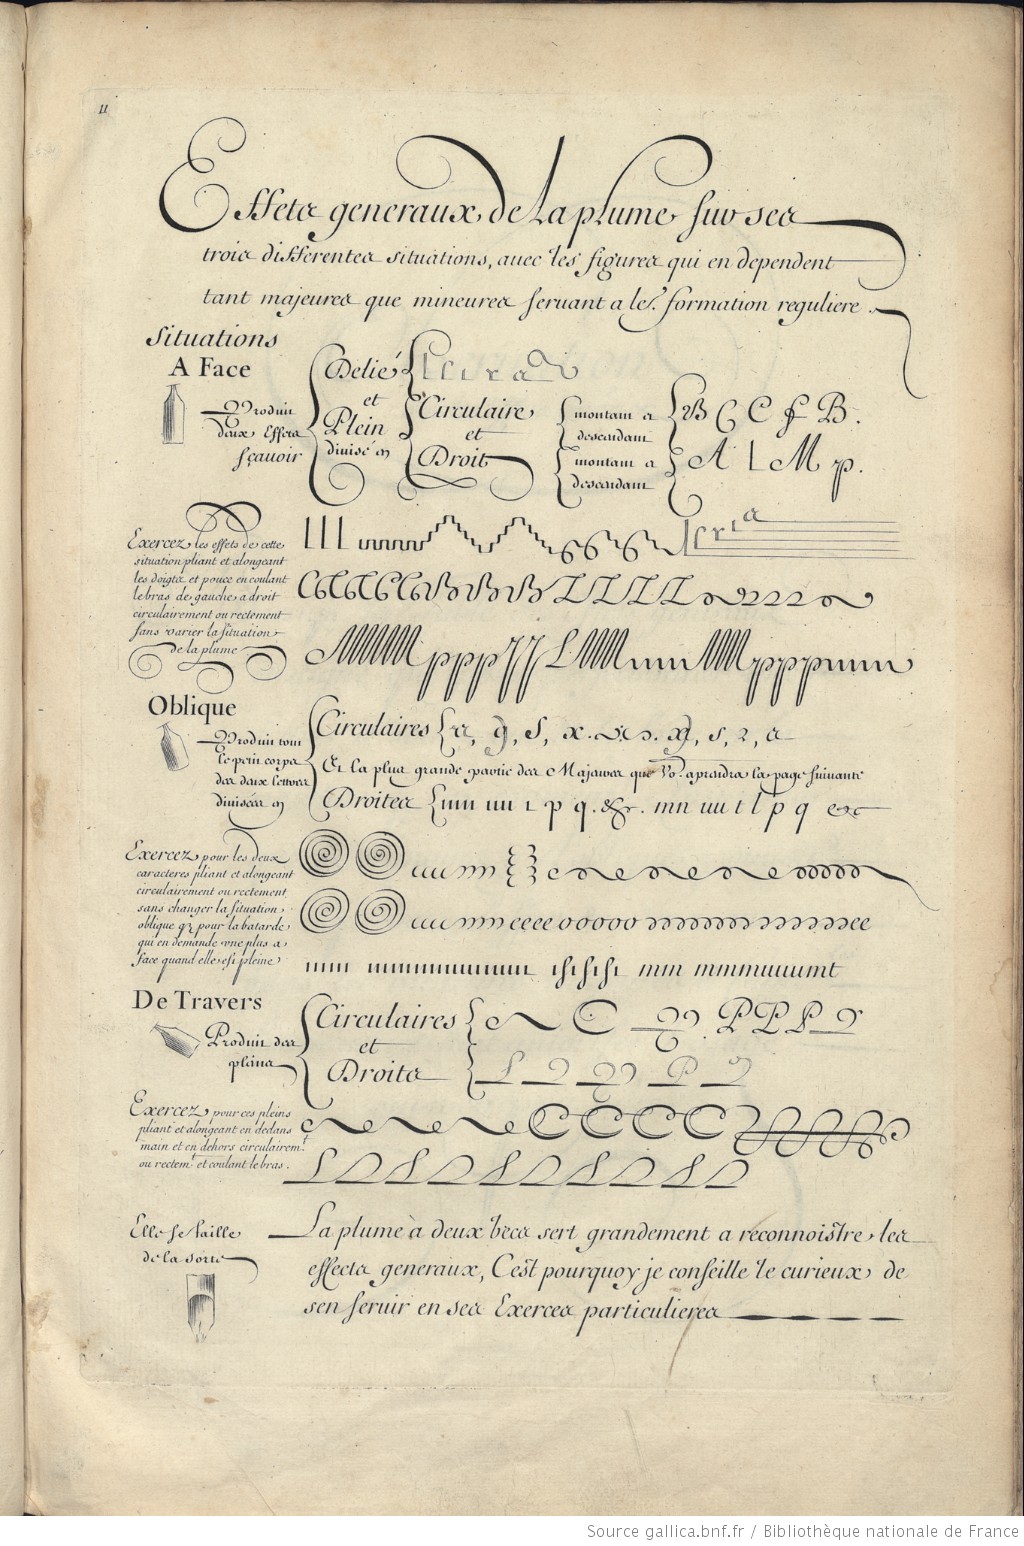 11
Effets generaux de la plume sur ses
trois differentes situations, avec les figures qui en dependent
tant majeures que mineures servant a le^s. formation reguliere.
Situations
A Face
Produit
deux Effets
sçavoir
Delié
et
Plein
divisé en
Circulaire
et
Droit
montant a
descendant
montant a
descendant
B C C f B.
A l M p.
Exercez les effets de cette
situation pliant et alongeant
les doigts et pouce en coulant
le bras de gauche a droit
circulairement ou rectement
sans varier la situation
de la plume
Oblique
Produit tout
le pein corps
des deux lettres
divisées en
Circulaires
Et la plus grande partie des Majeures que vo.^s aprendra la page suivante
Droites
mn uu t l p q etc
Exercez pour les deux
caracteres pliant et alongeant
circulairement ou rectement
sans changer la situation
oblique q^z pour la batarde
qui en demande vne plus a
face quand elle est pleine
De Travers
Produit des
plains
Circulaires
et
Droits
Exercez pour ces pleins
pliant et alongeant en dedans
main et en dehors circulairem^t.
ou rectem^t. et coulant le bras.
Elle se taille
de la sorte
La plume à deux becs sert grandement a reconnoistre les
effects generaux, C'est pourquoy je conseille le curieux de
sen servir en ses Exerces particulieres
Source gallica.bnf.fr / Bibliothèque nationale de France